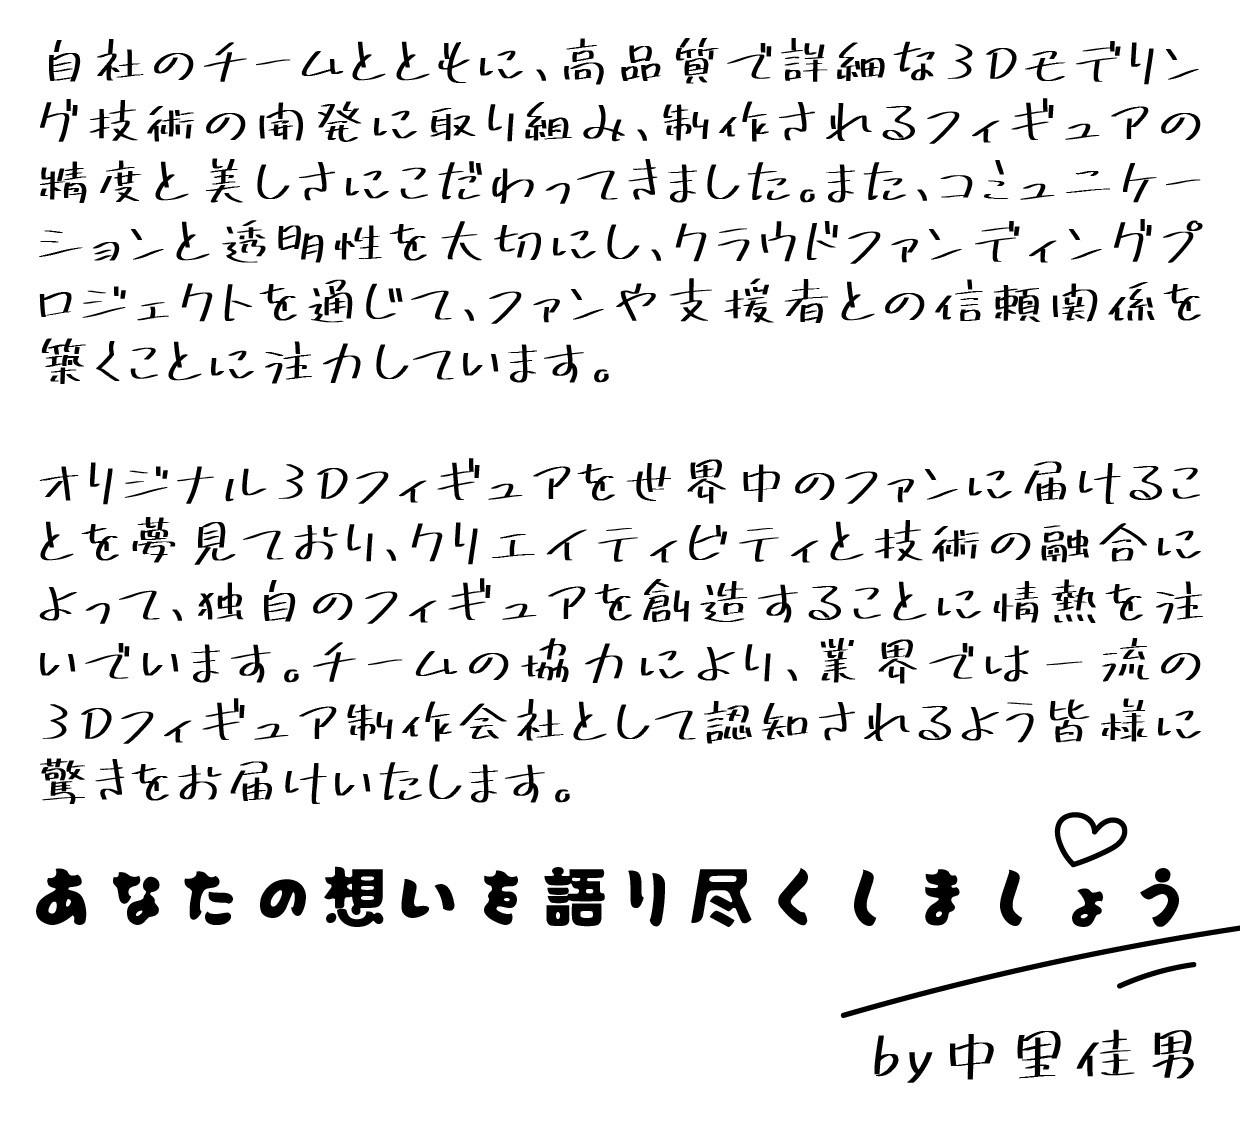 自社のチームとともに、高品質で詳細な3Dモデリン
グ技術の開発に取り組み、制作されるフィギュアの
精度と美しさにこだわってきました。また、コミュニケー
ションと透明性を大切にし、クラウドファンディングプ
ロジェクトを通じて、ファンや支援者との信頼関係を
築くことに注力しています。
オリジナル3Dフィギュアを世界中のファンに届けるこ
とを夢見ており、クリエイティビティと技術の融合に
よって、独自のフィギュアを創造することに情熱を注
いでいます。チームの協力により、業界では一流の
3Dフィギュア制作会社として認知されるよう皆様に
驚きをお届けいたします。
あなたの想いを語り尽くしましょう
by中里佳男